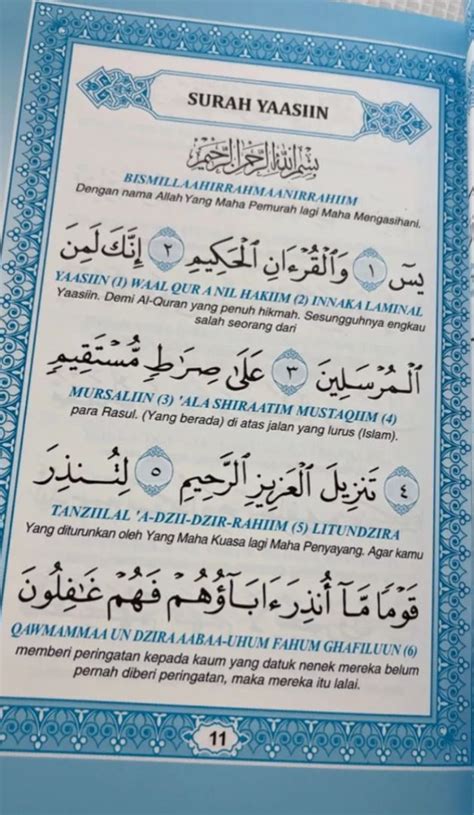 SURAH YAASIIN
بِسْمِ اللَّهِ الرَّحْمَنِ الرَّحِيْمِ
BISMILLAAHIRRAHMAANIRRAHIIM
Dengan nama Allah Yang Maha Pemurah lagi Maha Mengasihani.
يسٓ ١ وَالْقُرْءَانِ الْحَكِيمِ ٢ إِنَّكَ لَمِنَ
YAASIIN (1) WAAL QUR A NIL HAKIIM (2) INNAKA LAMINAL
Yaasiin. Demi Al-Quran yang penuh hikmah. Sesungguhnya engkau
salah seorang dari
الْمُرْسَلِينَ ٣ عَلَىٰ صِرَٰطٍ مُّسْتَقِيمٍ
MURSALIIN (3) 'ALA SHIRAATIM MUSTAQIIM (4)
para Rasul. (Yang berada) di atas jalan yang lurus (Islam).
٤ تَنزِيلَ الْعَزِيزِ الرَّحِيمِ ٥ لِتُنذِرَ
TANZIILAL 'A-DZII-DZIR-RAHIIM (5) LITUNDZIRA
Yang diturunkan oleh Yang Maha Kuasa lagi Maha Penyayang. Agar kamu
قَوْمًا مَّآ أُنذِرَ ءَابَآؤُهُمْ فَهُمْ غَٰفِلُونَ
QAWMAMMAA UN DZIRA AABAA-UHUM FAHUM GHAFILUUN (6)
memberi peringatan kepada kaum yang datuk nenek mereka belum
pernah diberi peringatan, maka mereka itu lalai.
11